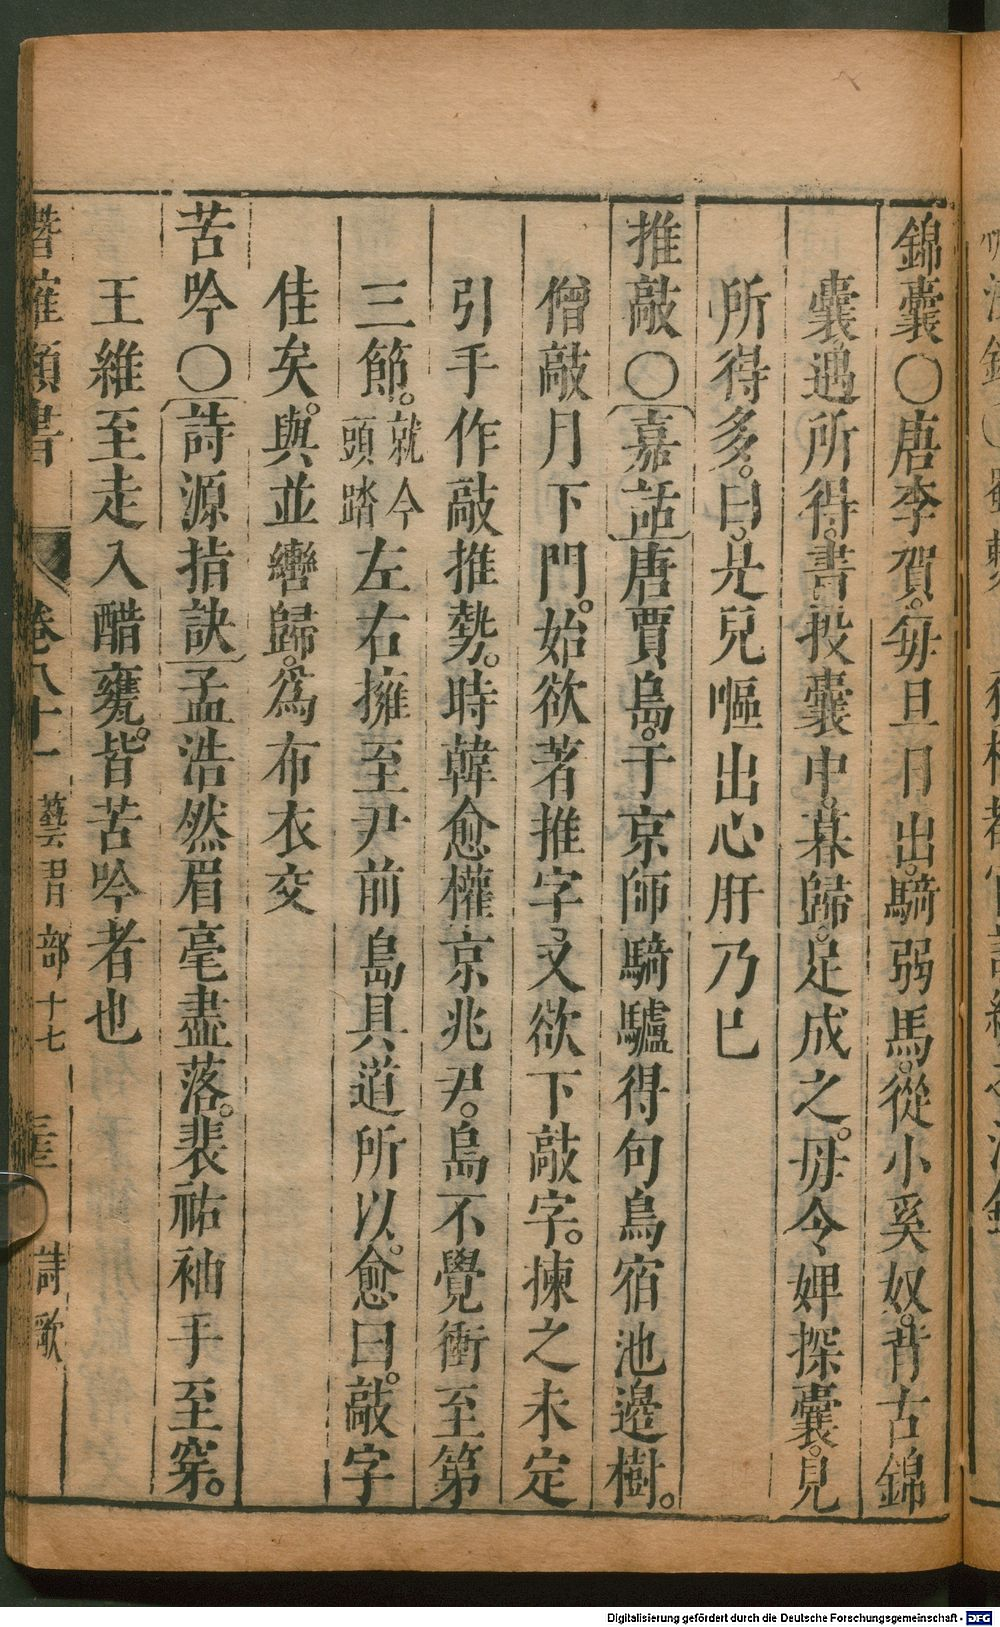 錦囊○唐李賀。每旦日出。騎弱馬。從小奚奴。背古錦
囊。遇所得。書投囊中。暮歸。足成之。母令婢探囊。見
所得多。曰。是兒嘔出心肝乃已
推敲○嘉話唐賈島。于京師騎驢得句鳥宿池邊樹。
僧敲月下門。始欲著推字。又欲下敲字。揀之未定
引手作敲推勢。時韓愈權京兆尹。島不覺衝至第
三節。就今頭踏左右擁至尹前島具道所以。愈曰。敲字
佳矣。與並轡歸。爲布衣交
苦吟○詩源指訣孟浩然眉毫盡落。裴祐袖手至穿。
王維至走入醋甕。皆苦吟者也
類書
卷八十一
藝習部十七
詩歌
Digitalisierung gefördert durch die Deutsche Forschungsgemeinschaft - DFG